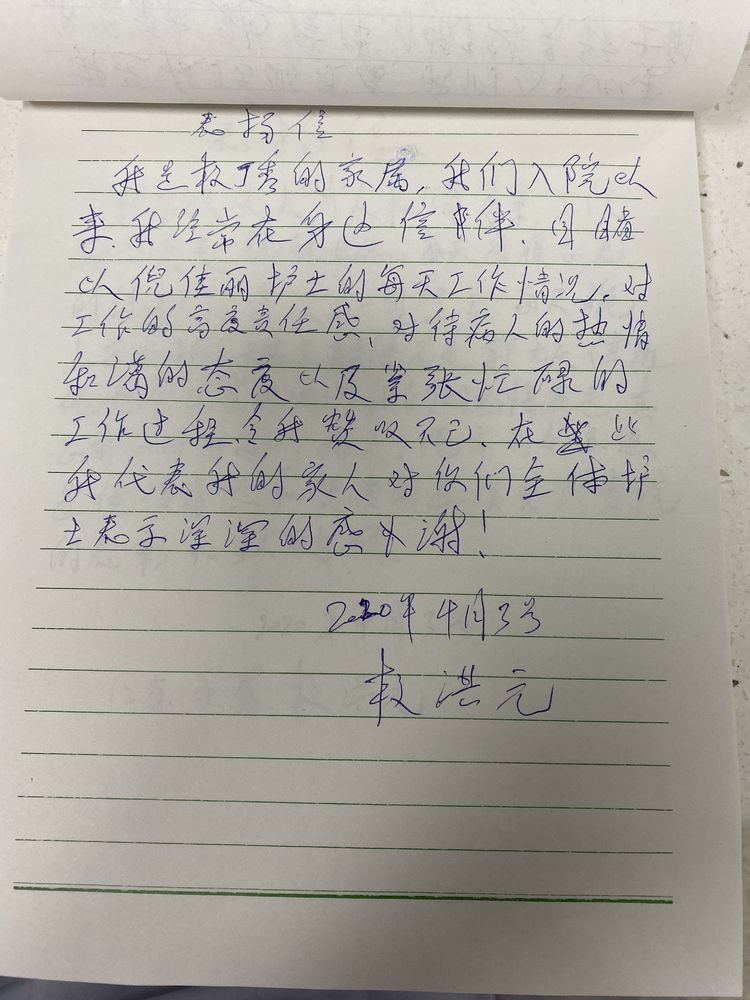 表扬信
我是敖丁秀的家属，我们入院以
来，我经常在身边信伴，目睹
以倪佳丽护士的每天工作情况，对
工作的高度责任感，对待病人的热情
和满的态度以及紧张忙碌的
工作过程，令我赞叹不已，在此
我代表我的家人对你们全体护
士表示深深的感谢！
2020年4月3号
敖洪元